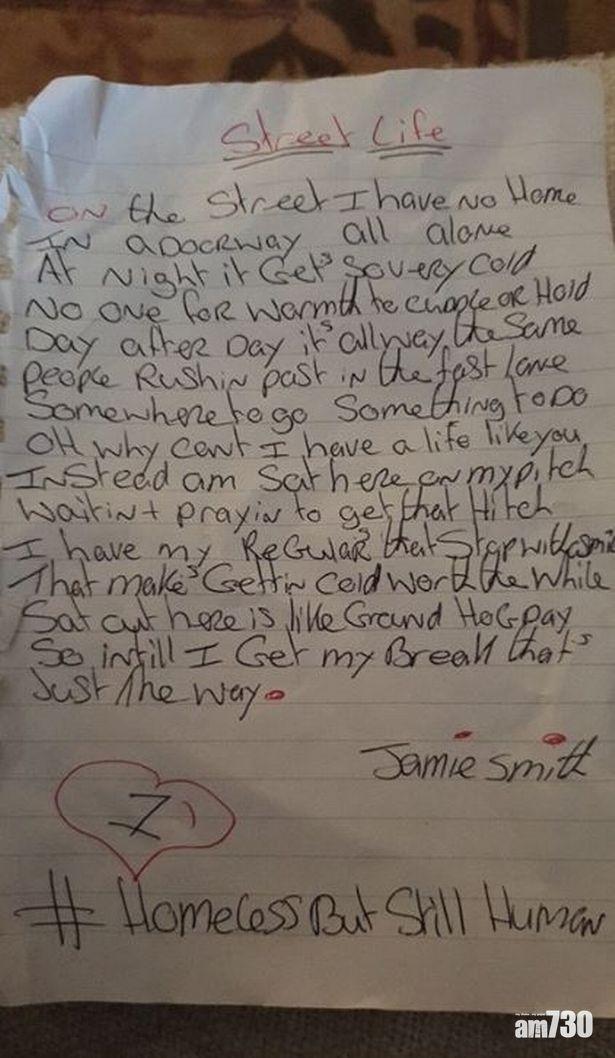 Street Life
ON the Street I have No Home
IN a Doorway all alone
At Night it Gets So very cold
No one for warmth to cuddle or Hold
Day after Day it's allway,s the Same
people Rushin past in the fast lane
Somewhere to go Something to Do
OH why cant I have a life like you,
INStead am Sat here on my pitch
Waitin + prayin to get that Hitch
I have my Regulars that Stop with a smile
That makes Gettin cold worth the while
Sat out here is like Ground HoG Day
So intill I Get my Break that's
Just the way.
Jamie Smith
# Homeless But Still Human
am730